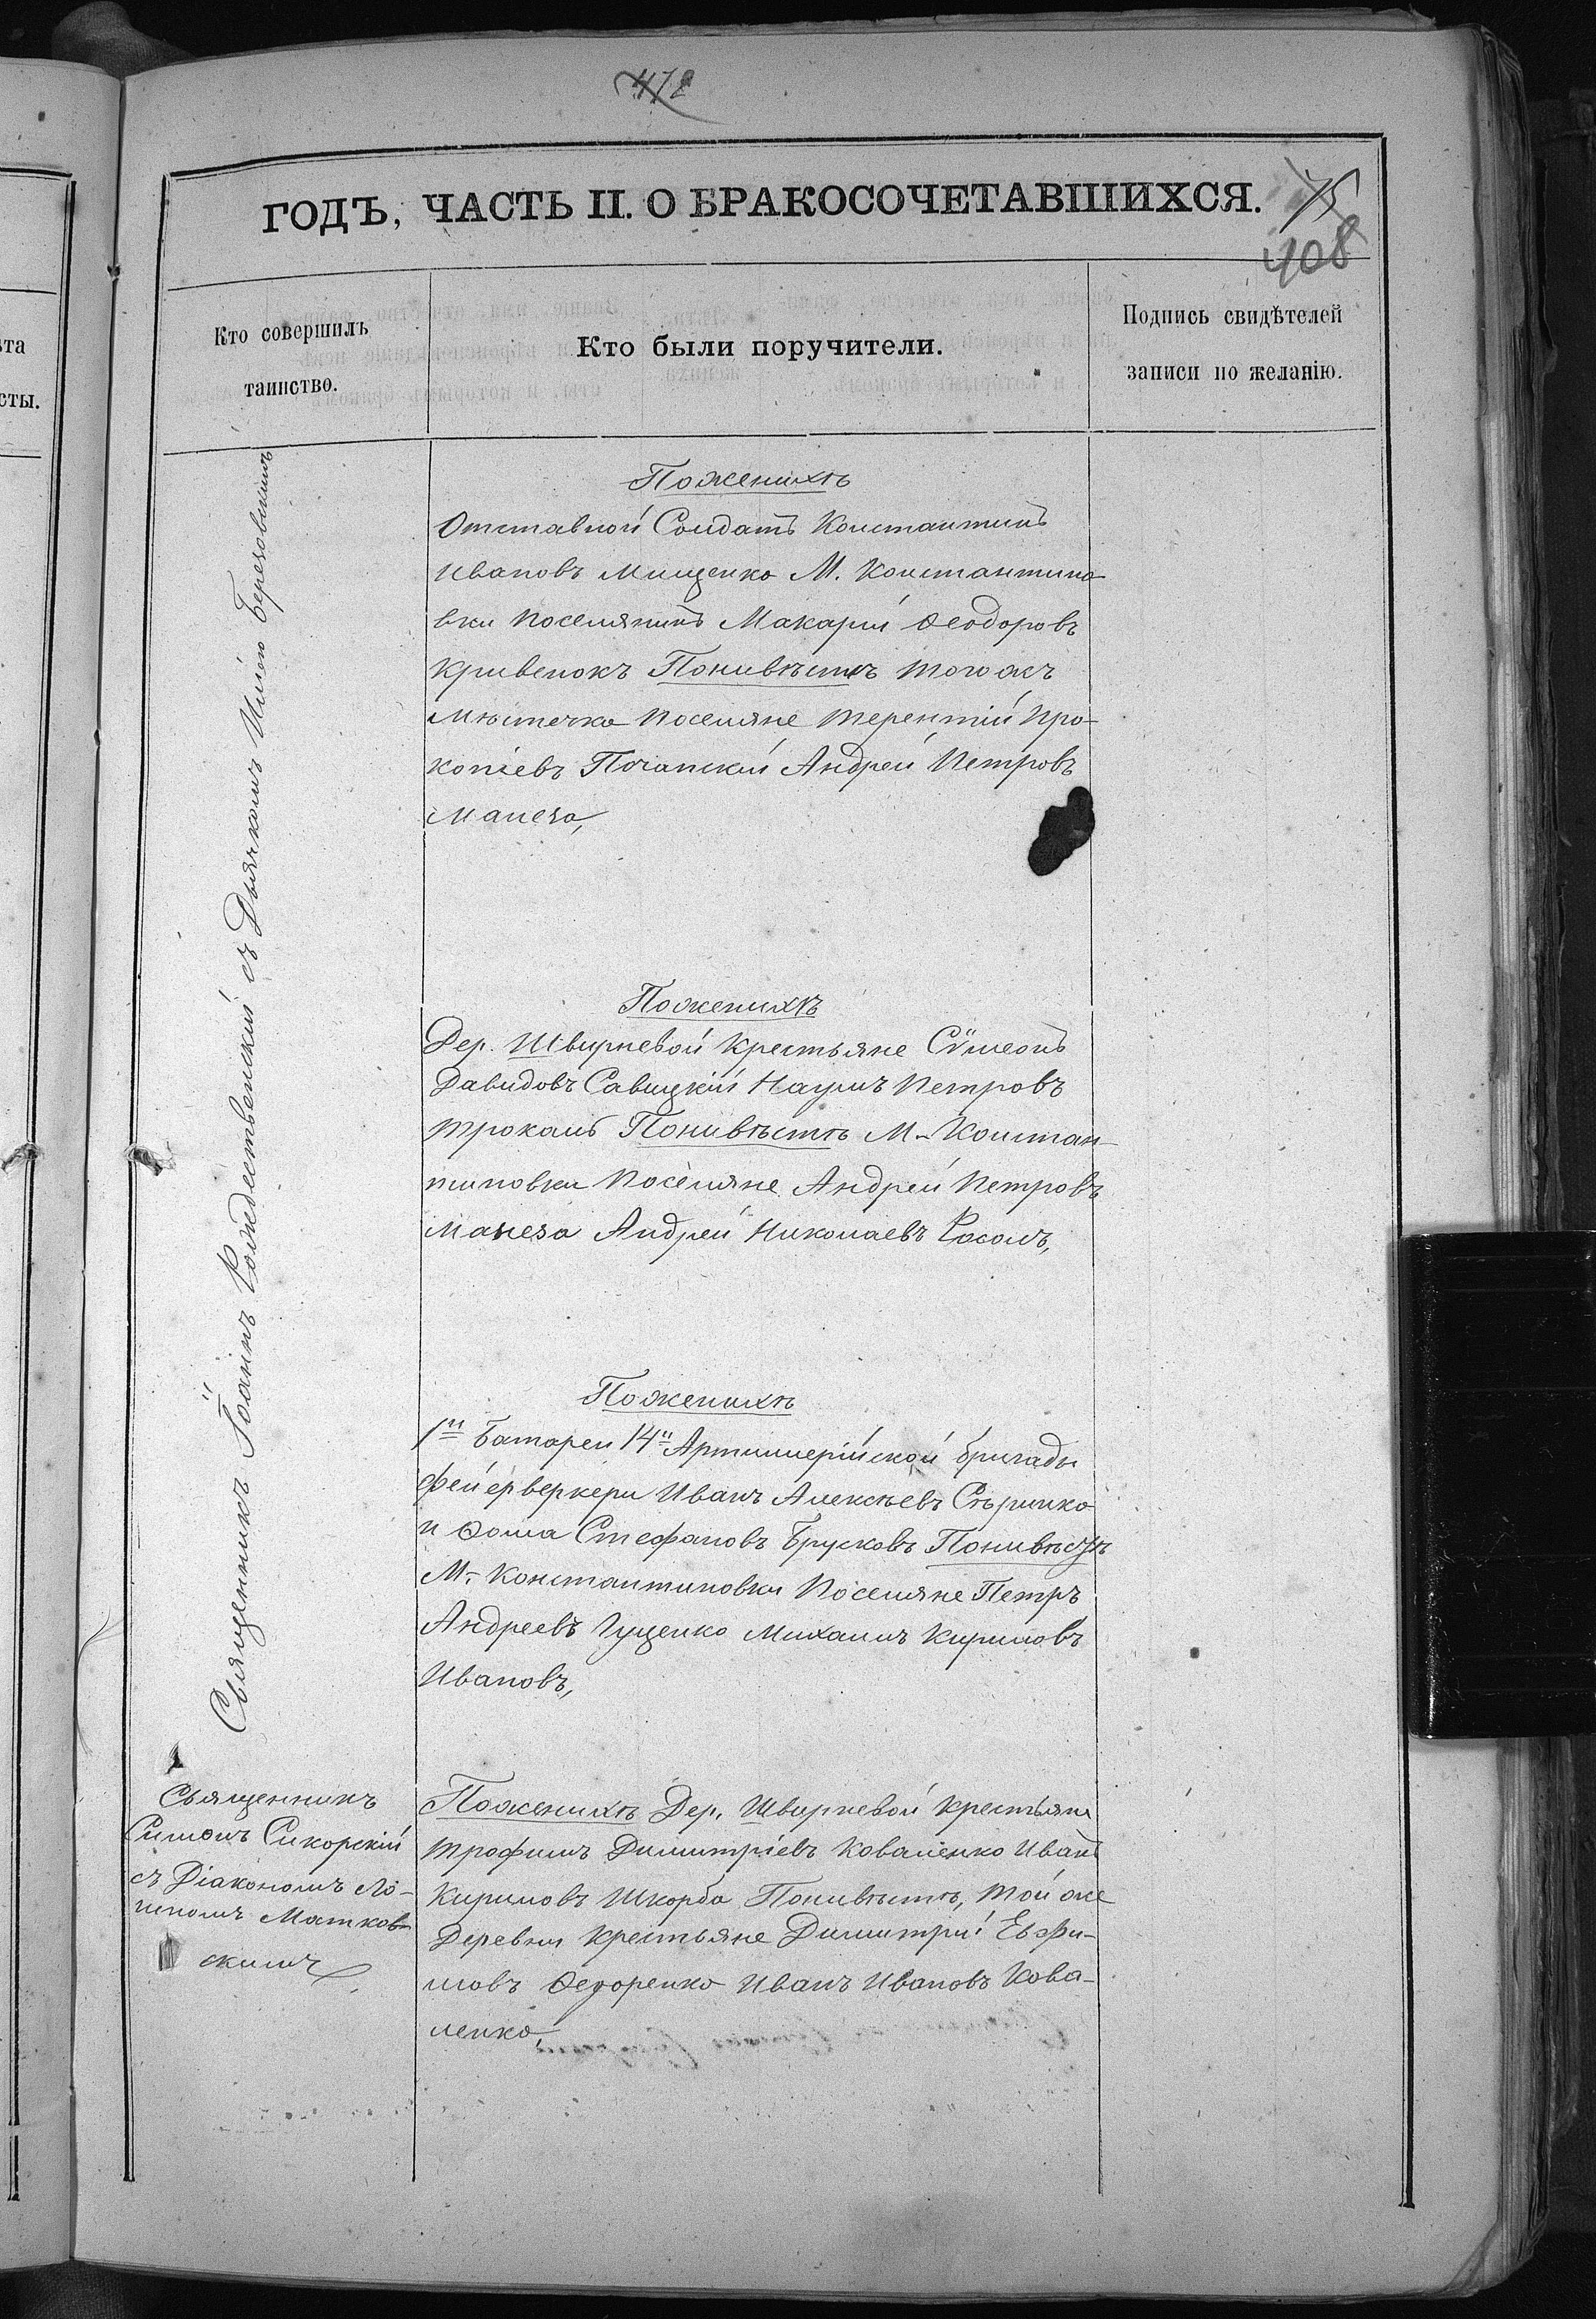 472
ГОДЪ, ЧАСТЬ II. О БРАКОСОЧЕТАВШИХСЯ.
75
408
Кто совершилъ
таинство.
Кто были поручители.
Подпись свидѣтелей
записи по желанію.
ста
сты.
Священникъ Іоаннъ Рождественскій съ Дьячкомъ Ильею Березовскимъ
По женихѣ
Отставной Солдатъ Константинъ
Ивановъ Мищенко М. Константино-
вки поселянинъ Макарій Ѳеодоровъ
Кривенокъ По невѣстѣ того жъ
мѣстечка поселяне Терентій Про-
копіевъ Почапскій Андрей Петровъ
Манеза,
По женихѣ
Дер. Швирневой крестьяне Сѵмеонъ
Давидовъ Савицкій Наумъ Петровъ
Трокалъ По невѣстѣ М. Констан-
тиновки поселяне Андрей Петровъ
Манеза Андрей Николаевъ Росолъ,
По женихѣ
1й Батареи 14й Артиллерійской бригады
фейерверкери Иванъ Алексѣевъ Сѣрицко
и Ѳома Стефановъ Брусковъ По невѣстѣ
М. Константиновки поселяне Петръ
Андреевъ Гущенко Михаилъ Кириловъ
Ивановъ,
Священникъ
Симонъ Сикорскій
съ Діакономъ Ло-
гиномъ Матков-
скимъ
По женихѣ Дер. Швирневой крестьяне
Трофимъ Димитріевъ Коваленко Иванъ
Кириловъ Шкорба По невѣстѣ, той же
деревни крестьяне Димитрій Евфи-
мовъ Ѳедоренко Иванъ Ивановъ Кова-
ленко,